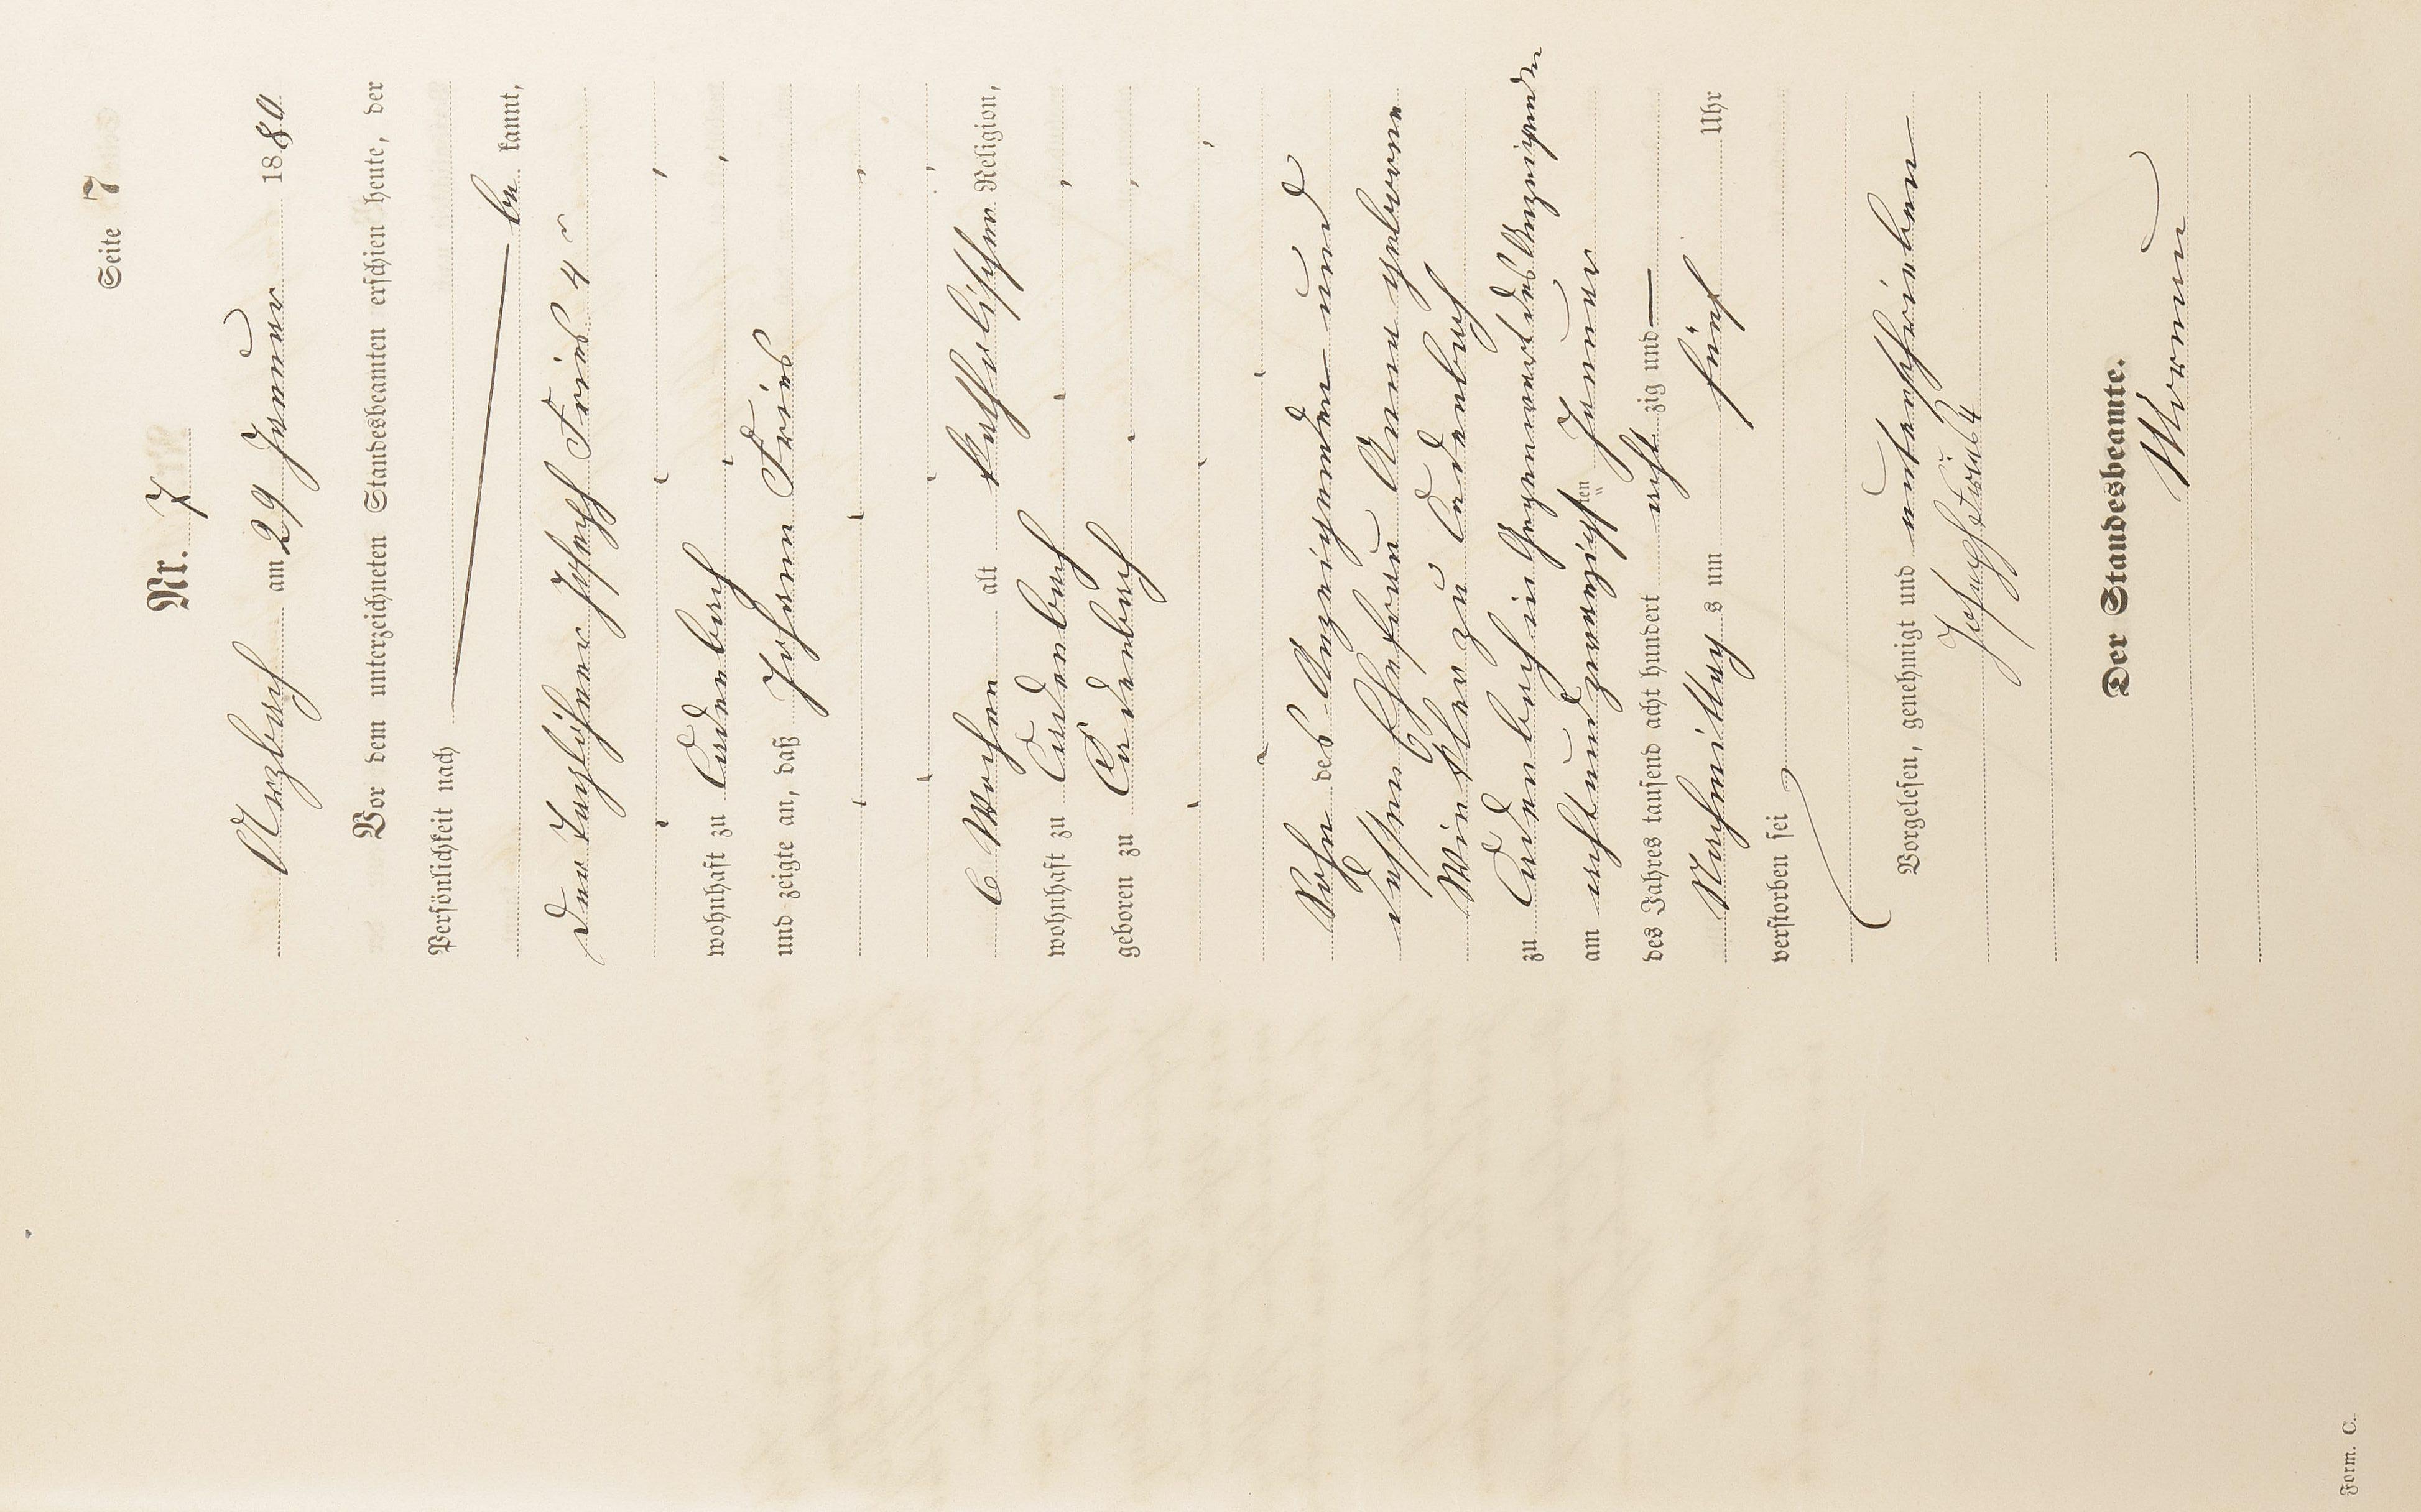 Seite 7
Nr. 7
Arzbach am 29 Januar 1880
Vor dem unterzeichneten Standesbeamten erschien heute, der
Persönlichkeit nach
be kannt,
der Taglöhner Joseph Fries 4 r
wohnhaft zu Cadenbach
und zeigte an, daß Johann Fries
6 Wochen alt katholischer Religion,
wohnhaft zu Cadenbach
geboren zu Cadenbach
Sohn des Anzeigenden und
dessen Ehefrau Anna geborene
zu Cadenbach
zu Cadenbach in Gegenwart des Anzeigenden
am achtundzwanzigsten Januar
des Jahres tausend acht hundert acht zig und —
Nachmittag s um fünf Uhr
verstorben sei
Vorgelesen, genehmigt und unterschrieben
Joseph Fries 4
Der Standesbeamte.
Form. C.